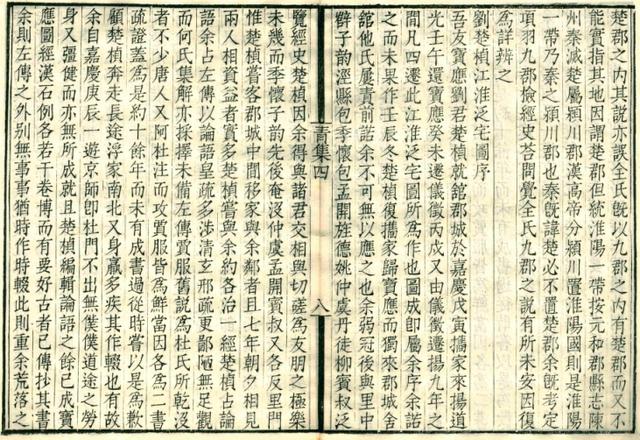 楚郡之内其說亦誤全氏既以九郡之内有楚郡而又不
能實指其地因謂楚郡但統淮陽一帶按元和郡縣志陳
州秦滅楚屬潁川郡漢高帝分潁川置淮陽國則是淮陽
一帶乃秦之潁川郡也秦既諱楚必不置楚郡余既考定
項羽九郡檢經史荅問覺全氏九郡之說有所未安因復
爲詳辨之
劉楚楨江淮泛宅圖序
吾友寶應劉君楚楨就舘郡城於嘉慶戊寅攜家來揚道
光壬午還寶應癸未遷儀徵丙戌又由儀徵遷揚九年之
間凡四遷此江淮泛宅圖所爲作也圖成即屬余序余諾
之而未果作壬辰冬楚楨復攜家歸寶應而獨來郡城舍
舘他氏屢責前諾余不可無以應之也余弱冠後與里中
辥子韵涇縣包季懷包孟開旌德姚仲虞丹徒柳賓叔泛
青集四
八
覽經史楚楨因余得與諸君交相與切磋爲友朋之極樂
未幾而季懷子韵先後奄沒仲虞孟開賓叔又各反里門
惟楚楨嘗客郡城中間移家與余鄰者且七年朝夕相見
兩人相資益者實多楚楨嘗與余約各治一經楚楨占論
語余占左傳以論語皇疏多涉清玄邢疏更鄙陋無足觀
而何氏集解亦採擇未備左傳賈服舊說爲杜氏所乾沒
者不少唐人又阿杜注而攻賈服皆爲鮮當因各爲二書
疏證蓋爲是約十餘年而未有成書過從時嘗以是爲歉
余自嘉慶庚辰一遊京師卽杜門不出無僕僕道途之勞
顧楚楨奔走長途浮家南北又身羸多疾其作輟也有故
身又彊健而亦無所成就且楚楨編輯論語之餘已成寶
應圖經漢石例各若干卷博而有要好古者已傳抄其書
余則左傳之外別無事事猶時作時輟此則重余荒落之